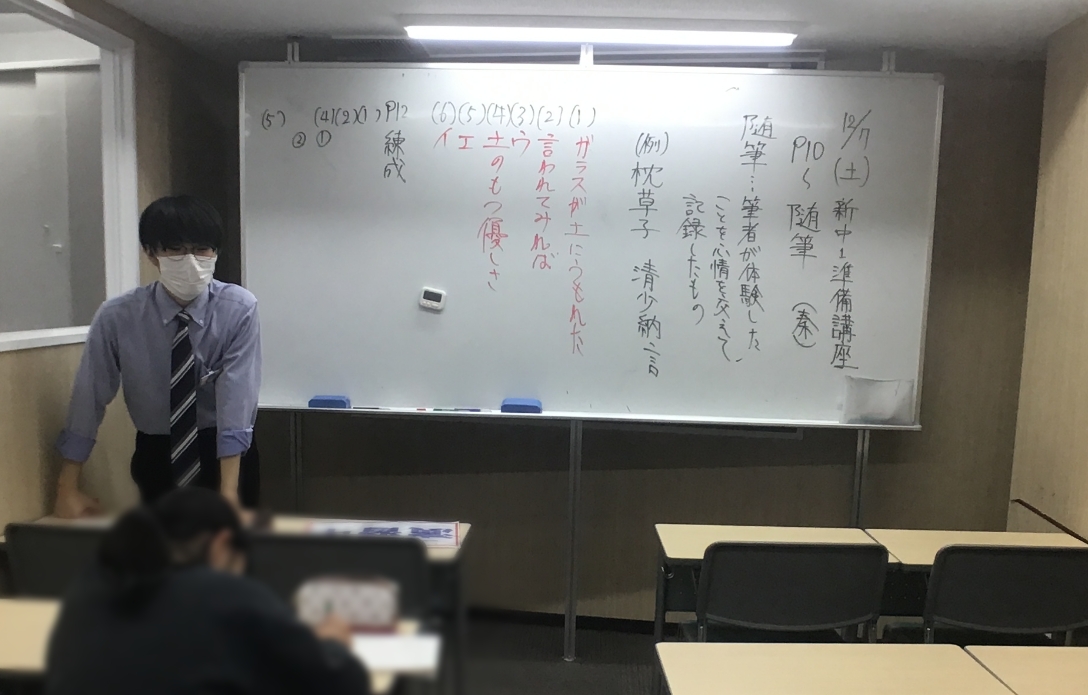 12/7(土) 新中1準備講座
P10〜 随筆 (奏)
随筆…筆者が体験した
ことを心情を交えて、
記録したもの
(例) 枕草子 清少納言
(1) ガラスが土にうもれた
(2) 言われてみれば
(3) ウ
(4) 土のもつ優しさ
(5) エ
(6) イ
P12 練成
(1)
(2) ①
(4)
(5) ②